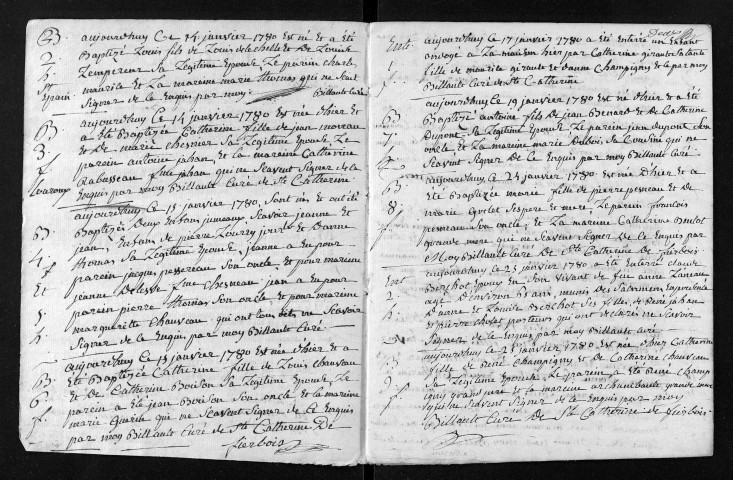 B. aujourdhuy Ce 14 janvier 1780 Est né et a Eté
2. Baptizé Louis fils de Louis de la chelle et De Louise
h. Lempereur Sa Legitime Epouse Le parein charle
St maurile et La mareine marie thomas qui ne Scait
Epain Signer de ce Enquis par moy Billault Curé
B. aujourdhuy Ce 14 janvier 1780 Est née d'hier et
3. a Eté Baptizée Catherine fille de jean moreau
f. et De marie chesnier Sa Legitime Epouse Le
parein antoine jahan et La mareine Catherine
Rabusseau fme jahan qui ne Scavent Signer de Ce
Enquis par moy Billault Curé de Ste Catherine
aujourdhuy Ce 15 janvier 1780 Sont nés et ont été
B. Baptizés Deux Enfans jumeaux Scavoir jeanne et
4. jean, Enfans de pierre et D'anne
f. thomas Sa Legitime Epouse, jeanne a Eu pour
Et parein jacques Son oncle, et pour mareine
jeanne Delesse fme Chesneau jean a Eu pour
5. parein pierre thomas Son oncle et pour mareine
h. marguerite Chauveau qui ont tous dit ne Scavoir
Signer de ce Enquis par moy Billault Curé
aujourdhuy Ce 15 janvier 1780 Est née d'hier et a
B. Eté Baptizée Catherine fille de Louis Chauveau
6. et De Catherine Boison Sa Legitime Epouse Le
f. parein a Eté jean Boison Son oncle et La mareine
marie qui ne Scavent Signer de Ce Enquis
par moy Billault Curé de Ste Catherine De
fierbois
Deux
Ent. aujourdhuy Ce 17 janvier 1780 a Eté Enterré un Enfant
1. ondoyé a La maison hier par Catherine giraute Sa tante
f. fille de maurile giraute et d'anne Champigny et le par moy
Billault Curé de Ste Catherine
aujourdhuy Ce 19 janvier 1780 Est né d'hier et a Eté
B. Baptizé antoine fils De jean Besnard et De Catherine
7. Dupont Sa Legitime Epouse Le parein jean dupont Son
h. oncle et La mareine marie Sa Cousine qui ne
Scavent Signer De Ce Enquis par moy Billault Curé
B. aujourdhuy Ce 24 janvier 1780 Est née D'hier et a
8. Eté Baptizée marie fille de pierre et De
f. marie Ses pere et mere Le parein francois
Son oncle, et La mareine Catherine
grande mere qui ne Scavent Signer De Ce Enquis par
Moy Billault Curé De Ste Catherine De fierbois
Ent. aujourdhuy Ce 25 janvier 1780 a Eté Enterré claude
2. Berchot Epoux en Son Vivant de feüe anne
h. agé D'environ ans, munis des Sacremens En presence
D'anne et Louise Berchot Ses filles, de René jahan
et pierre porteurs qui ont declarés ne Scavoir
Signer de ce Enquis par moy Billault Curé
B. aujourdhuy Ce 25 janvier 1780 Est née d'hier Catherine
9. fille de René Champigny et De Catherine chauveau
f. Sa Legitime Epouse Le parein a Eté René Champ
igny grand pere et La mareine grande mere
qui ne Scavent Signer de ce Enquis par moy
Billault Curé De Ste Catherine de fierbois